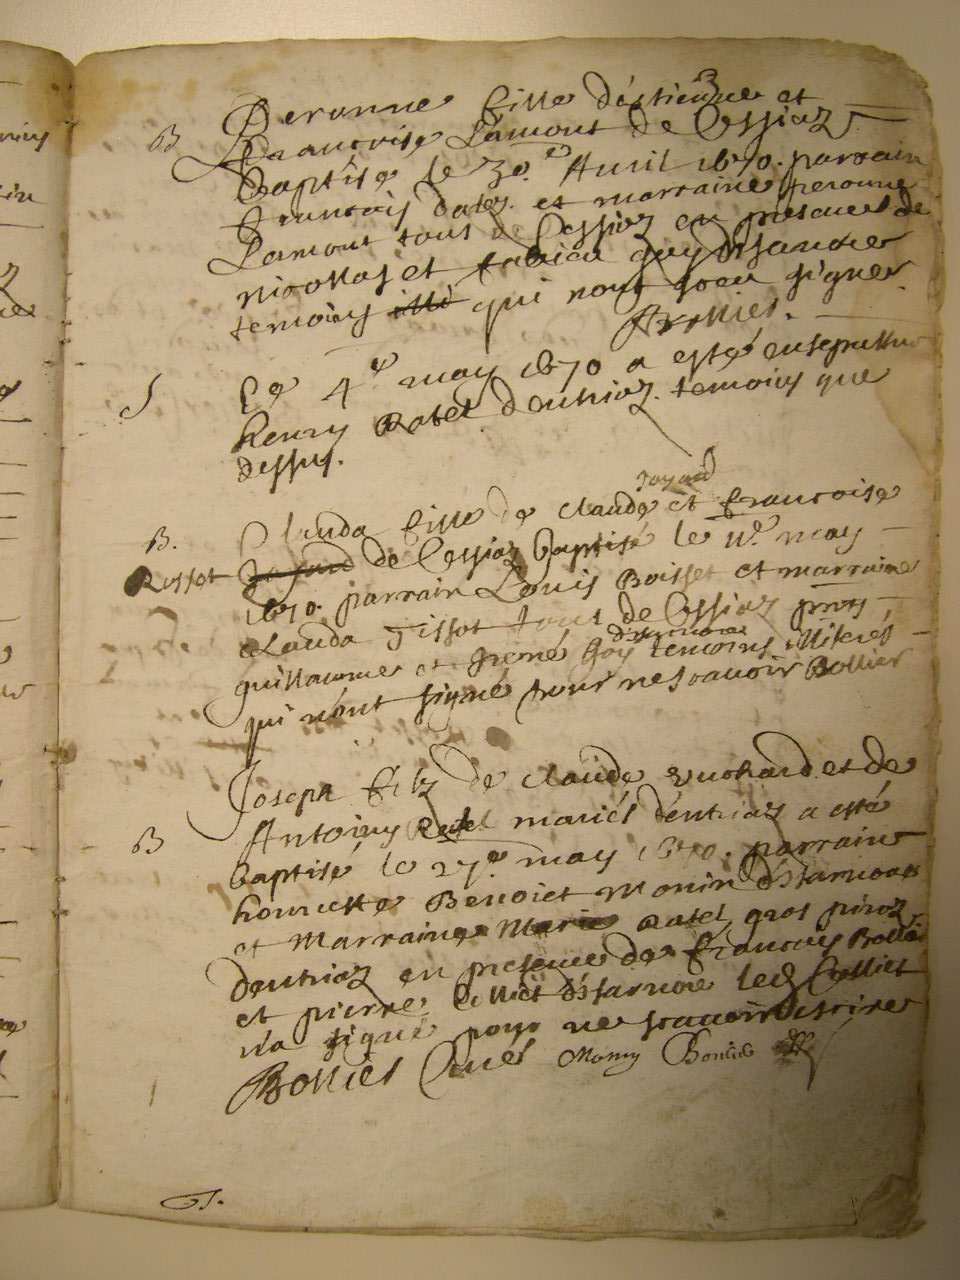 B Peronne fille d'estienne et
francoise Lamont de Cessiaz
baptisé le 30.e Avril 1670. parrain
francois Ratel. et marraine peronne
Lamont tous de Cessiaz en presence de
nicollas et fabien guy
temoins qui nont sceu signer
Bollies.
S Le 4e may 1670 a esté ensepultur
henry Ratel dentriaz. temoins que
dessus.
Joyard
B. Clauda fille de claude et francoise
Rosset de Cessiaz baptisé le 11.e may
1670. parrain Louis Boisset et marraine
Clauda Tissot tous de Cessiaz pnts
guillaume et guy temoins illiteres
qui n'ont signé pour ne scavoir Bollier
Joseph filz de claude et de
B Anthoiny Ratel mariés d'entriaz a esté
baptisé le 27.e may 1670. parrain
honneste Benoict Monin
et Marraine Marie Ratel
dentriaz en presence de francois Bollie
et pierre led Colliet
n'a signé pour ne scavoir escrire
Bollies Curé Mony Benoict